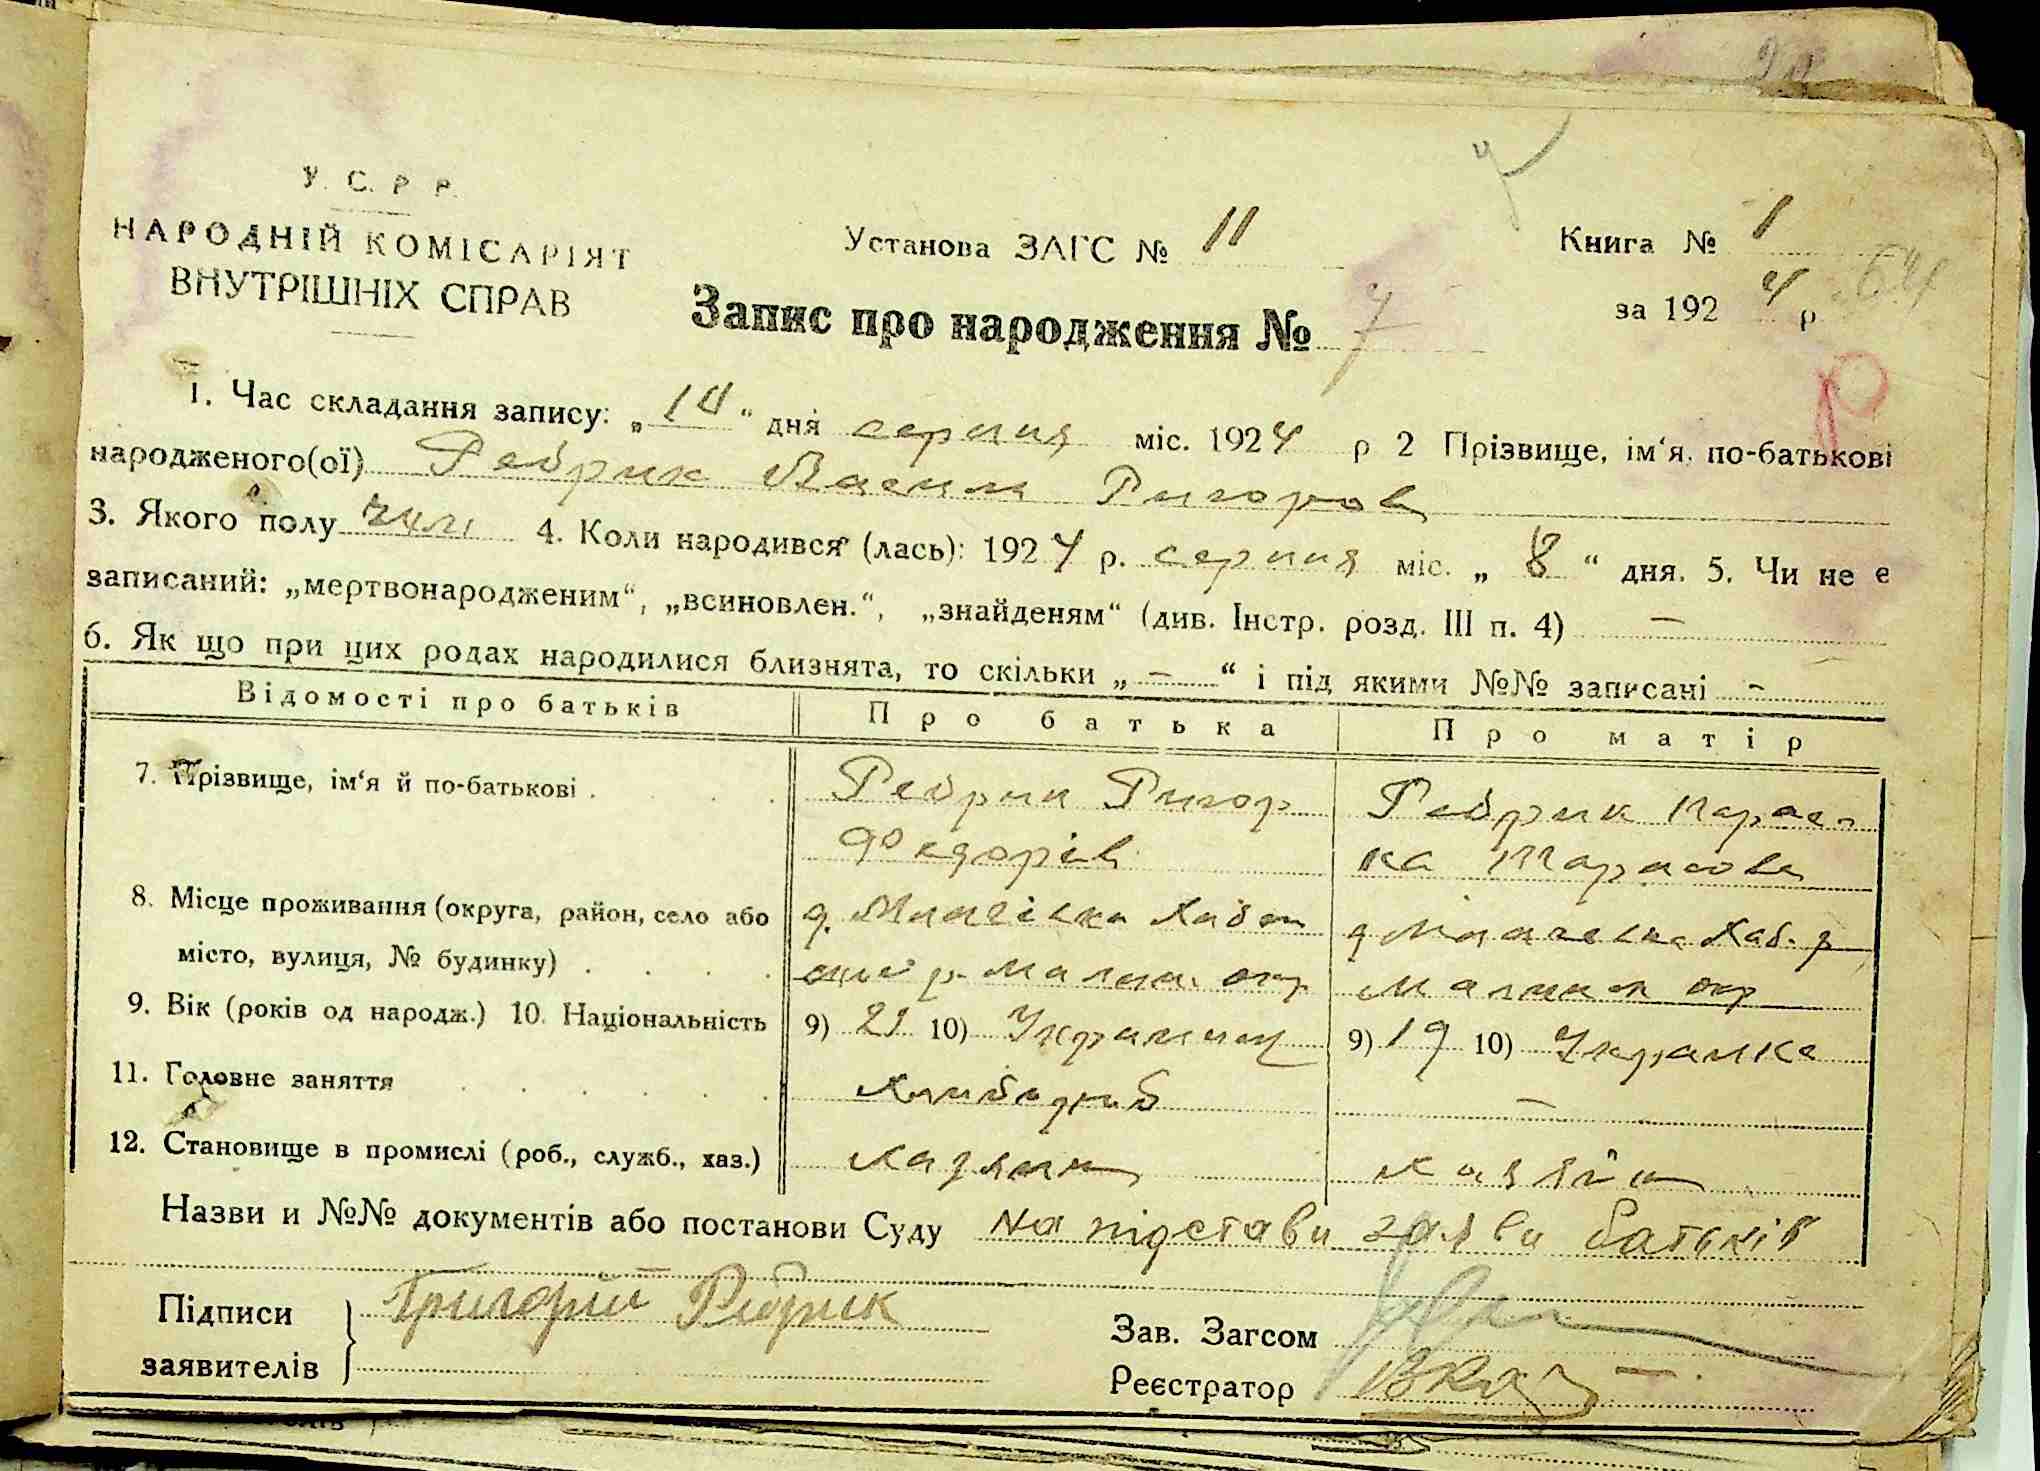 У. С. Р. Р.
НАРОДНІЙ КОМІСАРІЯТ
ВНУТРІШНІХ СПРАВ
Установа ЗАГС № 11
Книга № 1
за 192 4 р
64
Запис про народження № 7
1. Час складання запису: „ 14 “ дня серпня міс. 1924 р 2 Прізвище, ім‘я, по-батькові
народженого(ої) Ребрик Васил Ригоров
3. Якого полу чол 4. Коли народився (лась): 1924 р. серпня міс. „ 8 “ дня. 5. Чи не є
записаний: „мертвонародженим“, „всиновлен.“, „знайденям“ (див. Інстр. розд. III п. 4) —
6. Як що при цих родах народилися близнята, то скільки „ — “ і під якими №№ записані -
Відомості про батьків Про батька Про матір
7. Прізвище, ім‘я й по-батькові . Ребрик Ригор Ребрик Парас-
Федорів ка Тарасова
8. Місце проживання (округа, район, село або
місто, вулиця, № будинку) Малин. окр Малин окр
9. Вік (років од народж.) 10. Національність 9) 21 10) Українец 9) 19 10) Українка
11. Головне заняття Хлибороб —
12. Становище в промислі (роб., служб., хаз.) Хазяин Хазяін
Назви и №№ документів або постанови Суду На підстави заяви батьків
Підписи Григорій Ребрик
заявителів
Зав. Загсом
Реєстратор